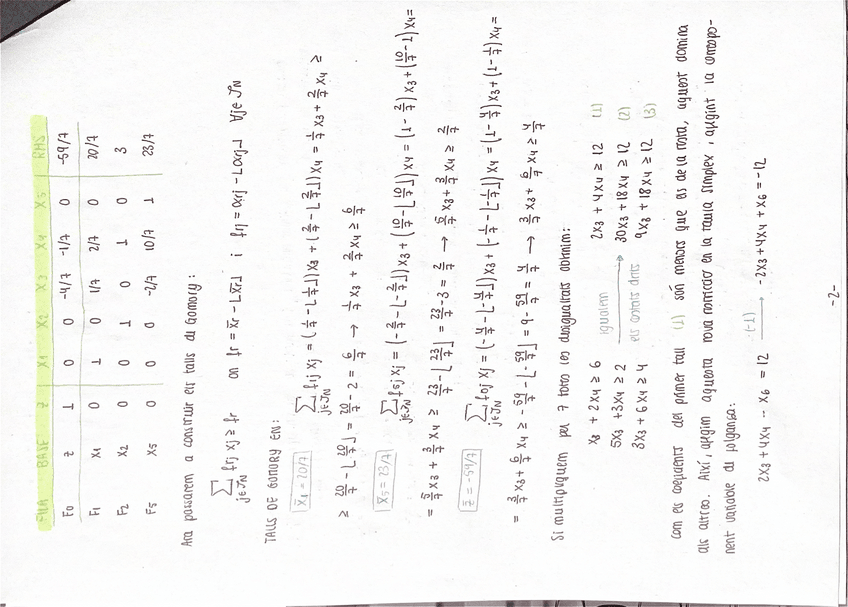 FILA BASE Z X1 X2 X3 X4 X5 RHS
F0 z 1 0 0 -4/7 -1/7 0 -59/7
F1 X1 0 1 0 1/7 2/7 0 20/7
F2 X2 0 0 1 0 1 0 3
F5 X5 0 0 0 -2/7 10/7 1 23/7
Ara passarem a construir els talls de Gomory:
∑j∈JN frj xj ≥ fr on fr = x̄r - ⌊x̄r⌋ i frj = αrj - ⌊αrj⌋ ∀j∈JN
TALLS DE GOMORY EN:
x̄1 = 20/7 ∑j∈JN frj xj = (1/7 - ⌊1/7⌋)x3 + (2/7 - ⌊2/7⌋)x4 = 1/7 x3 + 2/7 x4 ≥
≥ 20/7 - ⌊20/7⌋ = 20/7 - 2 = 6/7 → 1/7 x3 + 2/7 x4 ≥ 6/7
x̄5 = 23/7 ∑j∈JN f5j xj = (-2/7 - ⌊-2/7⌋)x3 + (10/7 - ⌊10/7⌋)x4 = (1 - 2/7)x3 + (10/7 - 1)x4 =
= 5/7 x3 + 3/7 x4 ≥ 23/7 - ⌊23/7⌋ = 23/7 - 3 = 2/7 → 5/7 x3 + 3/7 x4 ≥ 2/7
z̄ = -59/7 ∑j∈JN f0j xj = (-4/7 - ⌊-4/7⌋)x3 + (-1/7 - ⌊-1/7⌋)x4 = (1 - 4/7)x3 + (1 - 1/7)x4 =
= 3/7 x3 + 6/7 x4 ≥ -59/7 - ⌊-59/7⌋ = 9 - 59/7 = 4/7 → 3/7 x3 + 6/7 x4 ≥ 4/7
Si multipliquem per 7 totes les desigualtats obtenim:
x3 + 2x4 ≥ 6 igualem 2x3 + 4x4 ≥ 12 (1)
5x3 + 3x4 ≥ 2 → 30x3 + 18x4 ≥ 12 (2)
3x3 + 6x4 ≥ 4 els costats drets 9x3 + 18x4 ≥ 12 (3)
Com els coeficients del primer tall (1) són menors que els de la resta, aquest domina
als altres. Així, afegim aquesta nova restricció en la taula simplex, afegint la correspo-
nent variable de folgança:
2x3 + 4x4 - x6 = 12 (-1) → -2x3 - 4x4 + x6 = -12
-2-